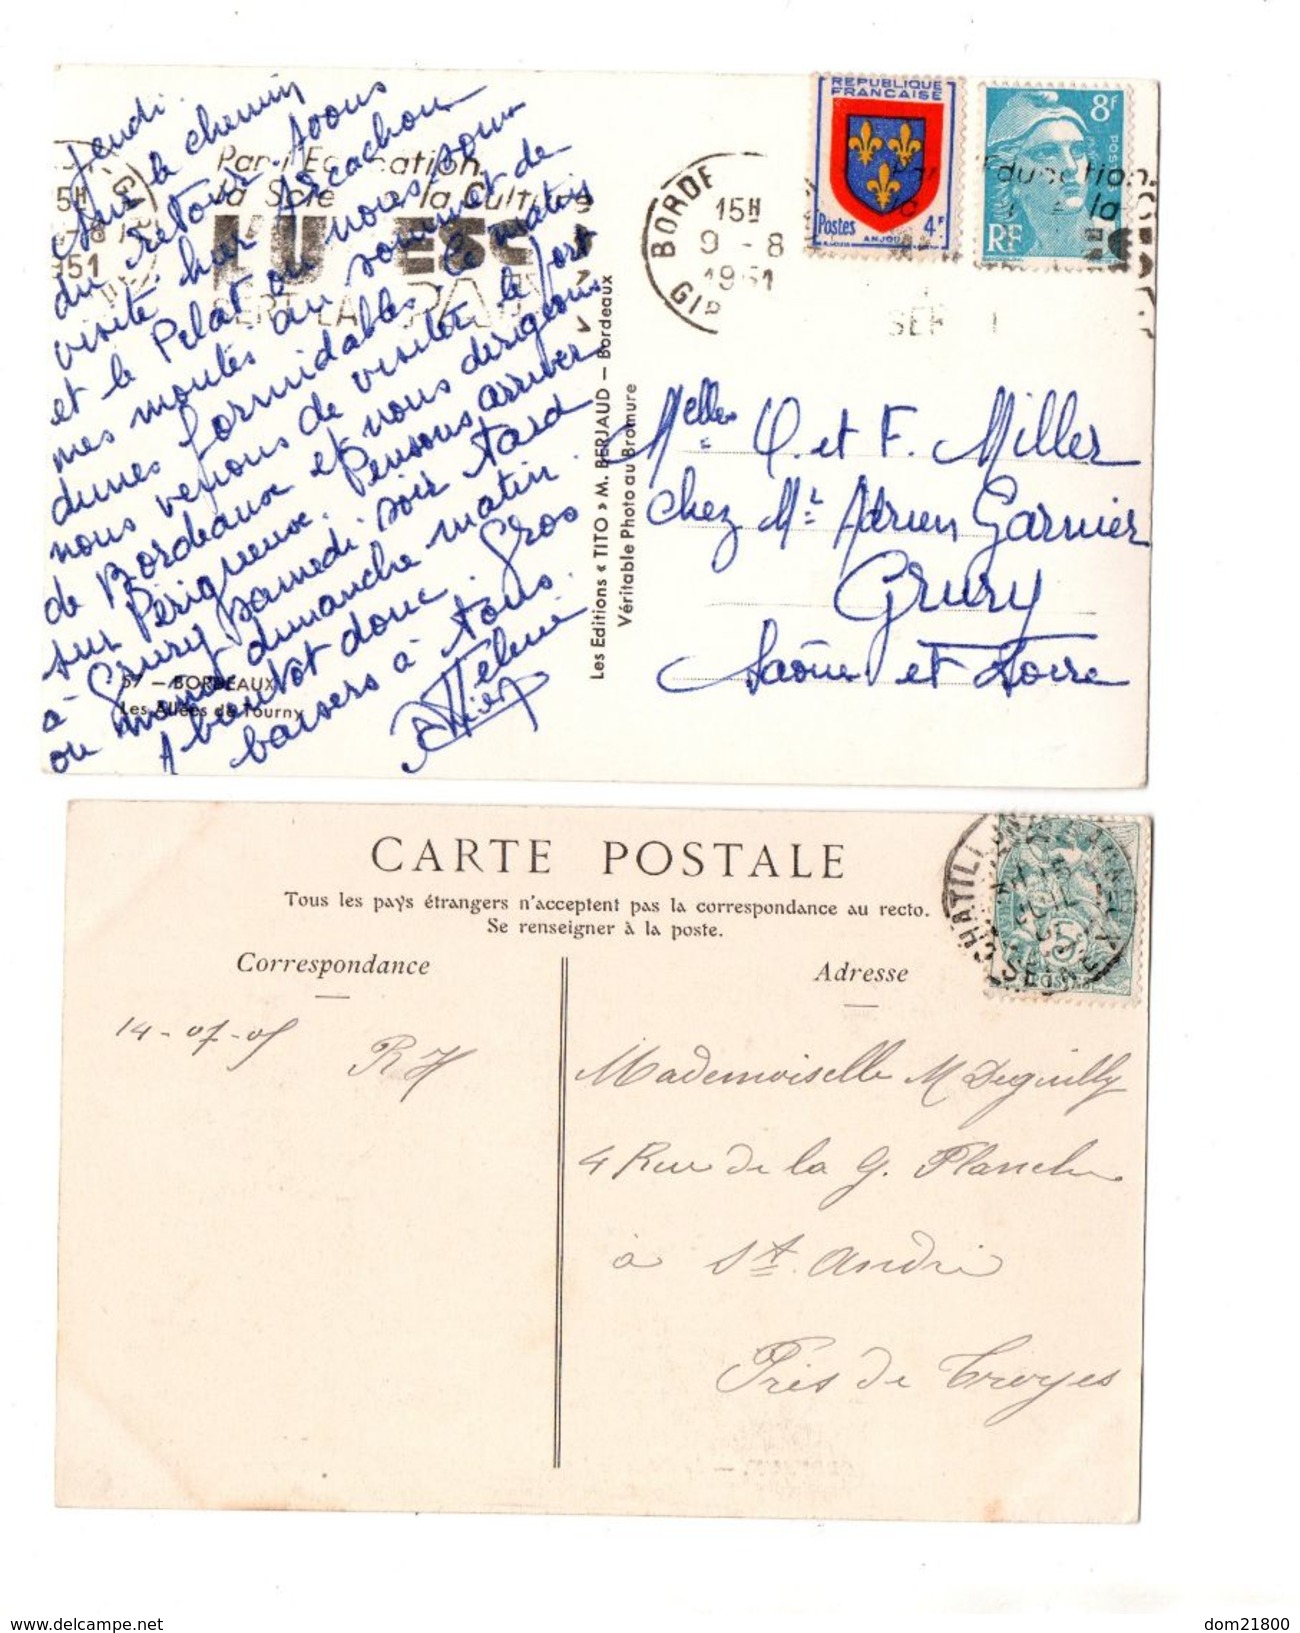 Jeudi.
Sur le chemin
du retour. Avons
visité hier Arcachon
et le Pelat où nous som-
mes montés au sommet de
dunes formidables. Ce matin
nous venons de visiter le port
de Bordeaux et nous dirigeons
sur Périgueux. Pensons arriver
à Grury samedi soir tard
ou dimanche matin.
A bientôt donc. Gros
baisers à tous.
Helene
57 - BORDEAUX
Les Allées de Tourny
Par l'Education,
la Science, la Culture
L'UNESCO
SERT LA PAIX
15H
1951
Les Editions « TITO » M. BERJAUD - Bordeaux
Véritable Photo au Bromure
BORDE
15H
9 - 8
1951
GIR
REPUBLIQUE
FRANÇAISE
Postes 4F
ANJOU
8F
POSTES
RF
Education,
la
SER
Melles O. et F. Miller
chez Mr Adrien Garnier
Grury
Saône et Loire
CARTE POSTALE
Tous les pays étrangers n'acceptent pas la correspondance au recto.
Se renseigner à la poste.
Correspondance
Adresse
CHATILLON
15
JUIL
05
SEINE
5
14-07-05
RH
Mademoiselle M Deguilly
4 Rue de la G. Planche
à St. André
Près de Troyes
delcampe.net
dom21800